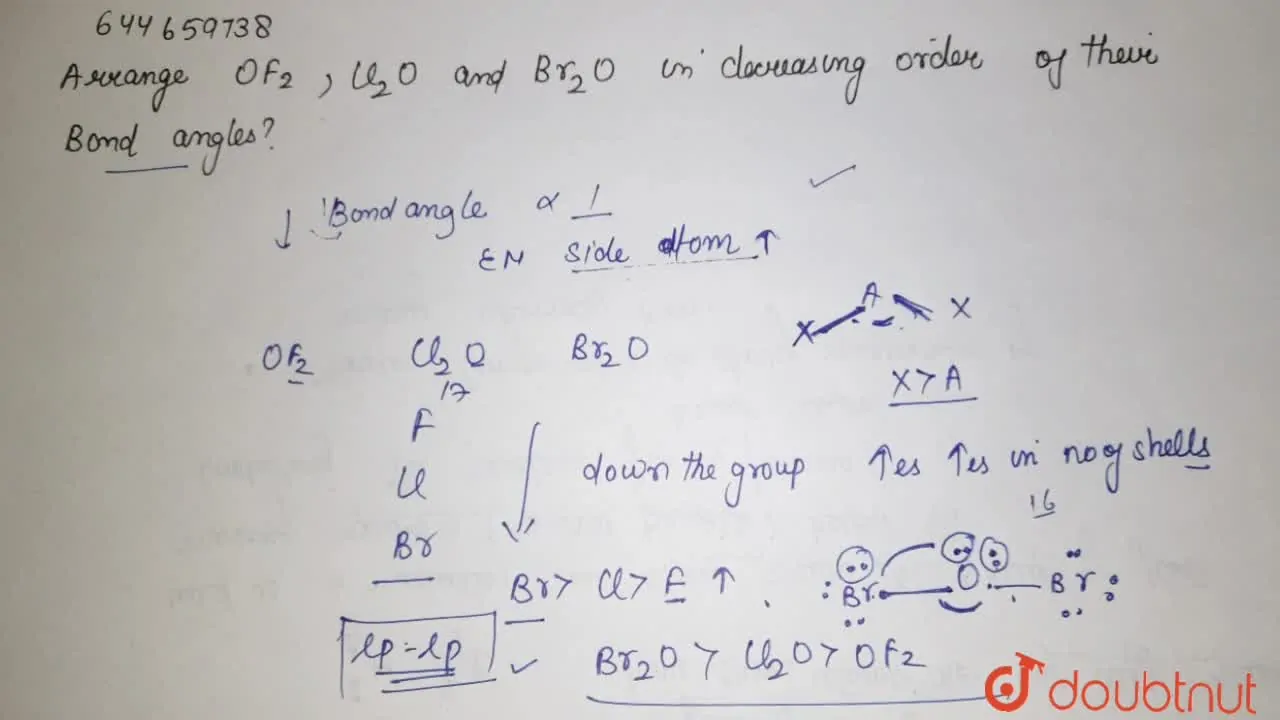 644659738
Arrange OF2, Cl2O and Br2O in decreasing order of their
Bond angles?
↓ Bond angle ∝ 1
EN side atom ↑
OF2 Cl2O Br2O
17
A
X X
X > A
F
Cl
Br
down the group ↑es ↑es in no of shells
16
Br > Cl > F ↑
Br O Br
lp-lp
Br2O > Cl2O > OF2
doubtnut